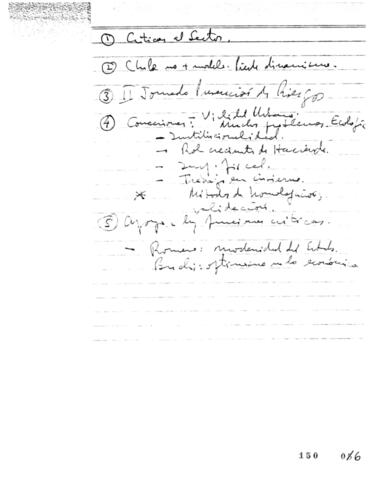 ① Críticas al Sector.
② Chile no + modelo: Pierde dinamismo.
③ II Jornada Prevención de Riesgos
④ Concesiones: - Vialidad Urbana: Muchos problemas. Ecología
- Institucionalidad.
- Rol creciente de Hacienda.
- Inv. fiscal.
- Trabajo en invierno.
* Métodos de
validación.
⑤ Apoyo a funciones críticas.
- Romero: modernidad del Estado.
Buchi: optimismo en lo económico
150 016